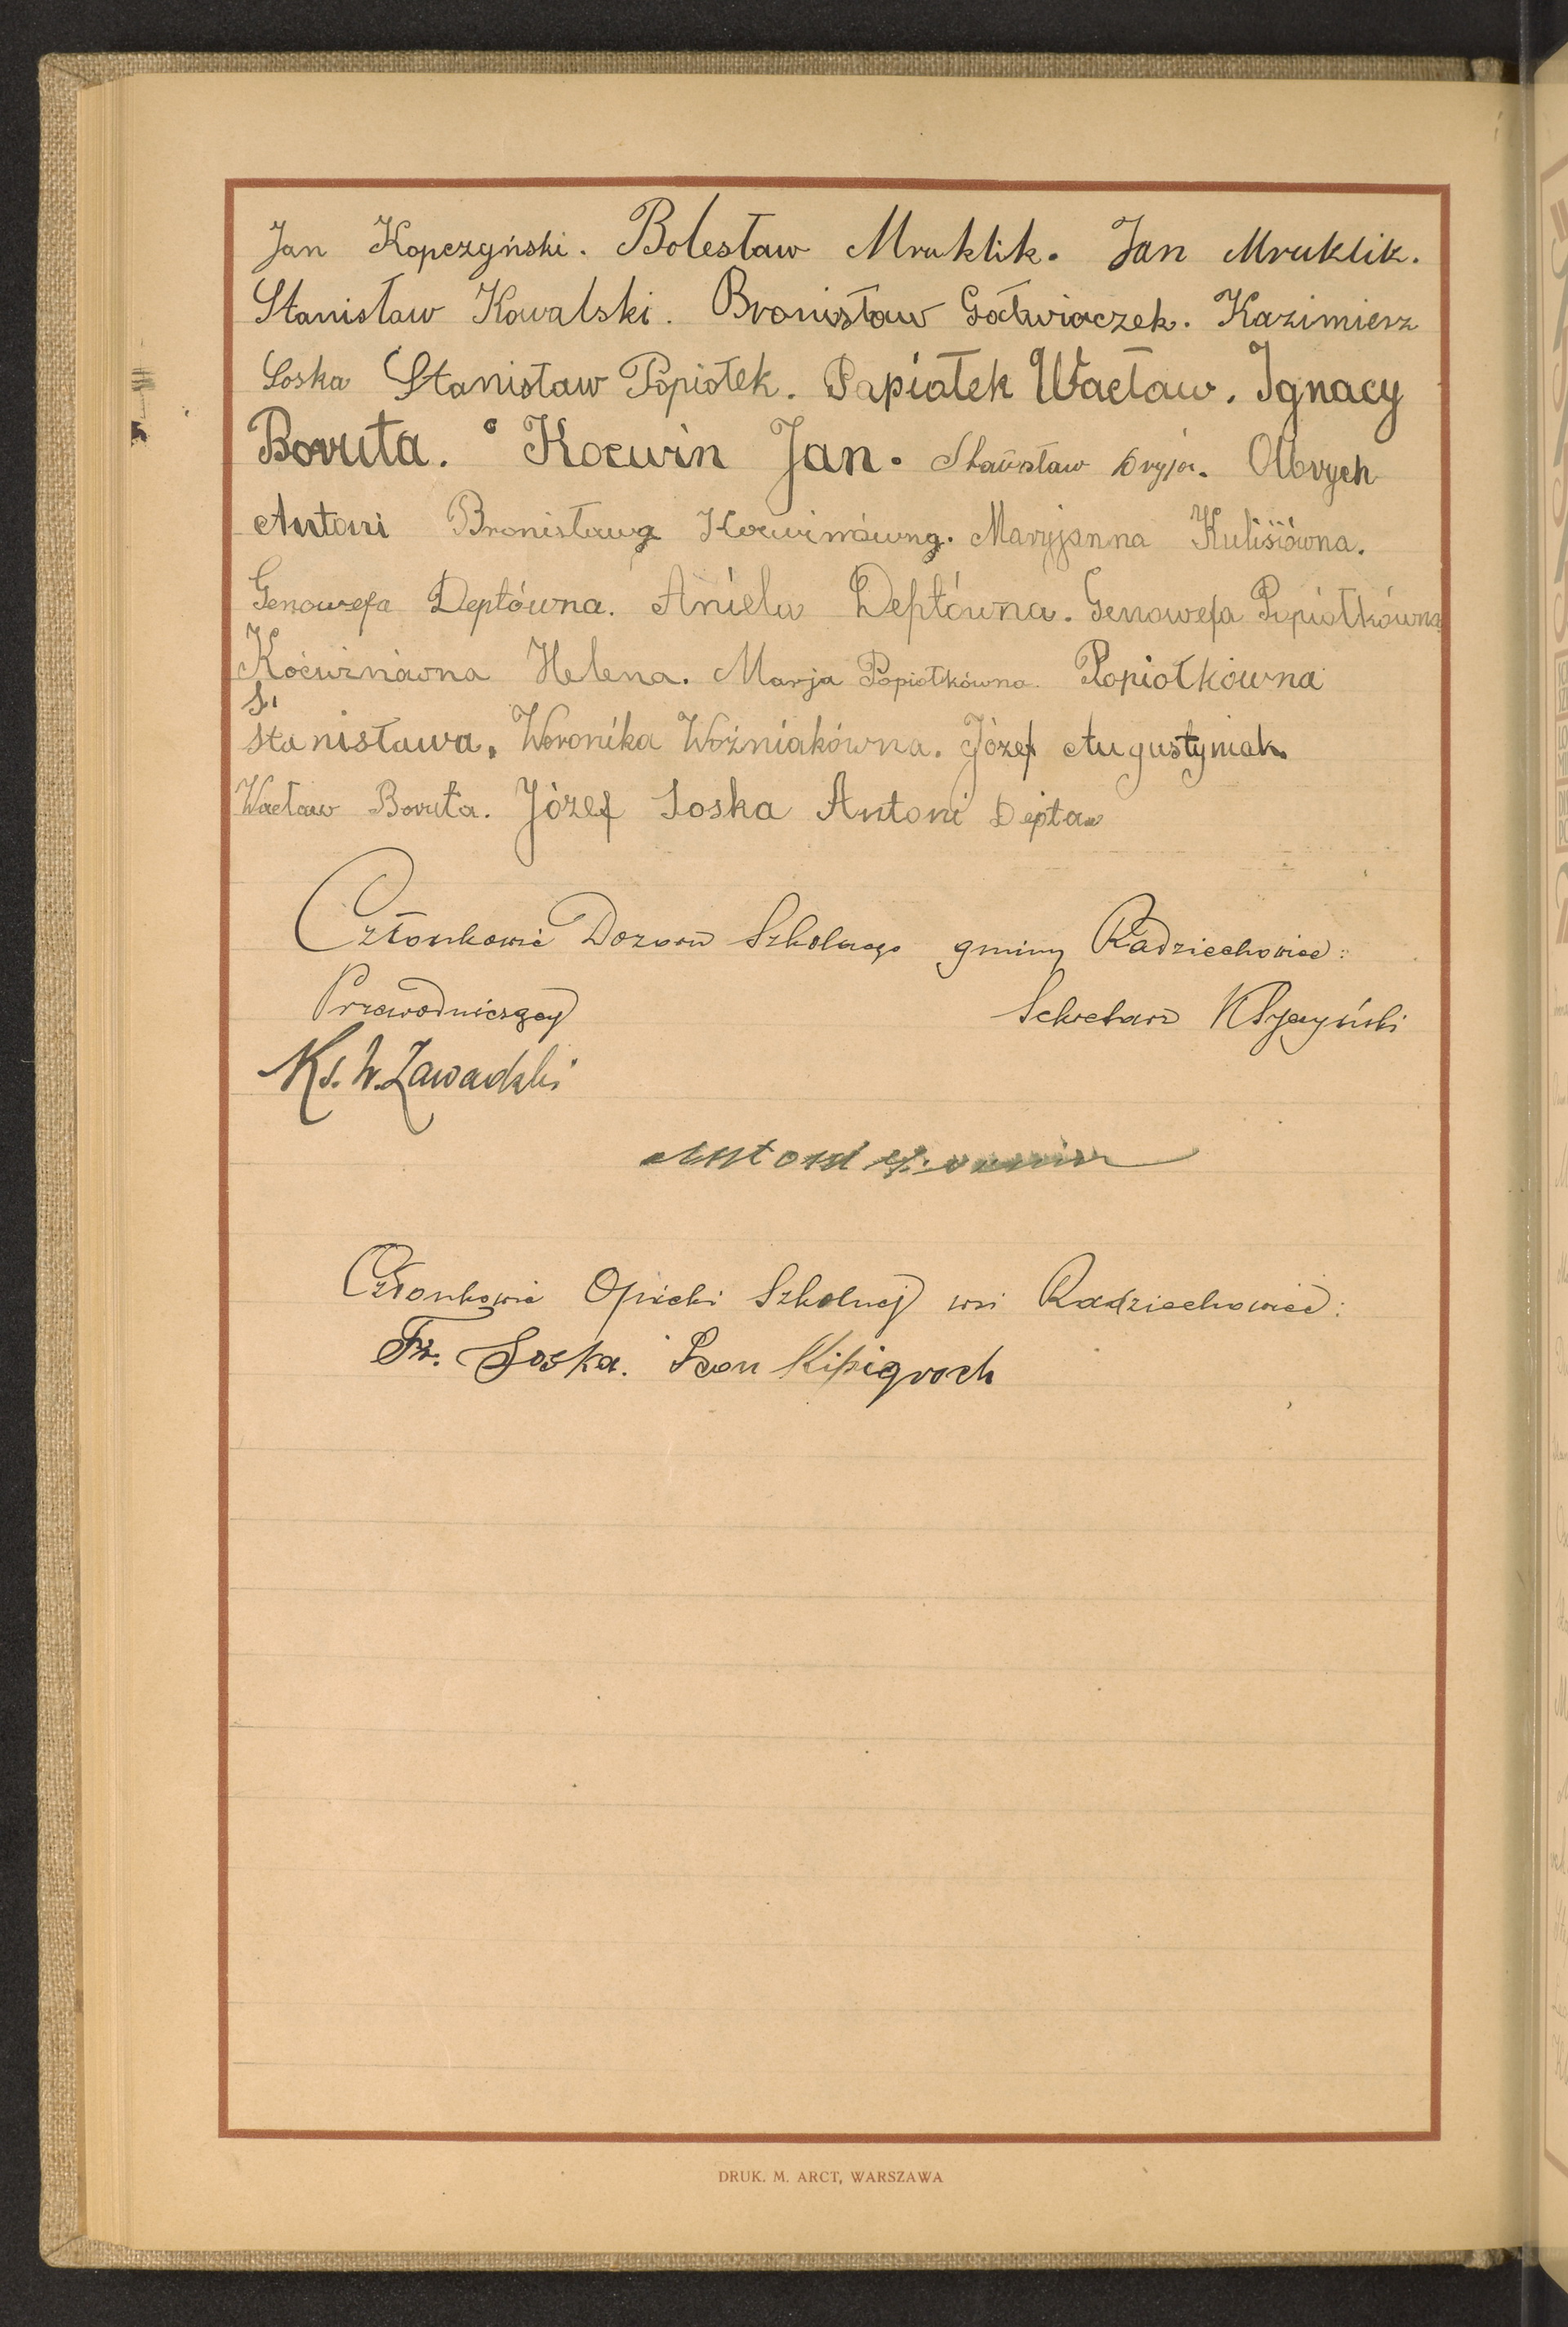 Jan Kopczyński. Bolesław Mruklik. Jan Mruklik.
Stanisław Kowalski. Bronisław Gałwiaczek. Kazimierz
Soska Stanisław Popiołek. Papiołek Wacław. Ignacy
Boruta. Kocwin Jan. Stanisław Dryja. Olbrych
Antoni Bronisława Kocwinówna. Maryjanna Kulisiówna.
Genowefa Deptówna. Aniela Deptówna. Genowefa Popiołkówna
Koćwinówna Helena. Marja Popiołkówna. Popiołkówna
Stanisława. Weronika Woźniakówna. Józef Augustyniak.
Wacław Boruta. Józef Soska Antoni Depta
Członkowie Dozoru Szkolnego gminy Radziechowice:
Przewodniczący Sekretarz
Ks. W. Zawadzki
Antoni
Członkowie Opieki Szkolnej wsi Radziechowice:
Fr. Soska. Leon Kipigroch
DRUK. M. ARCT, WARSZAWA